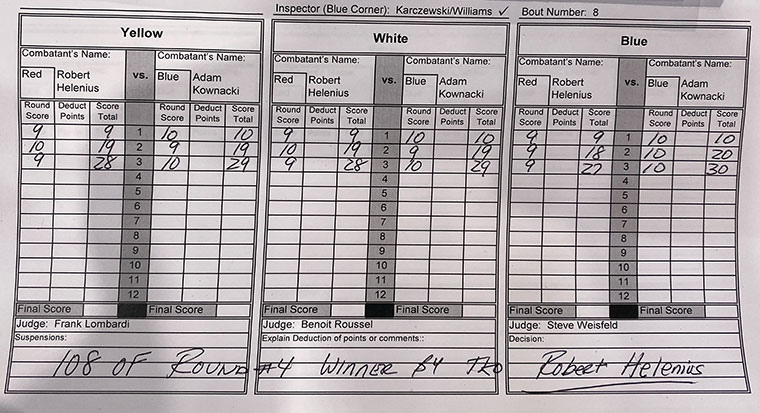 Inspector (Blue Corner): Karczewski/Williams ✓ Bout Number: 8
Yellow
Combatant's Name: Combatant's Name:
Red Robert Helenius vs. Blue Adam Kownacki
Round Score Deduct Points Score Total Round Score Deduct Points Score Total
9 9 1 10 10
10 19 2 9 19
9 28 3 10 29
4
5
6
7
8
9
10
11
12
Final Score Final Score
Judge: Frank Lombardi
Suspensions:
White
Combatant's Name: Combatant's Name:
Red Robert Helenius vs. Blue Adam Kownacki
Round Score Deduct Points Score Total Round Score Deduct Points Score Total
9 9 1 10 10
10 19 2 9 19
9 28 3 10 29
4
5
6
7
8
9
10
11
12
Final Score Final Score
Judge: Benoit Roussel
Explain Deduction of points or comments::
Blue
Combatant's Name: Combatant's Name:
Red Robert Helenius vs. Blue Adam Kownacki
Round Score Deduct Points Score Total Round Score Deduct Points Score Total
9 9 1 10 10
9 18 2 10 20
9 27 3 10 30
4
5
6
7
8
9
10
11
12
Final Score Final Score
Judge: Steve Weisfeld
Decision:
108 OF ROUND #4 WINNER BY TKO Robert Helenius